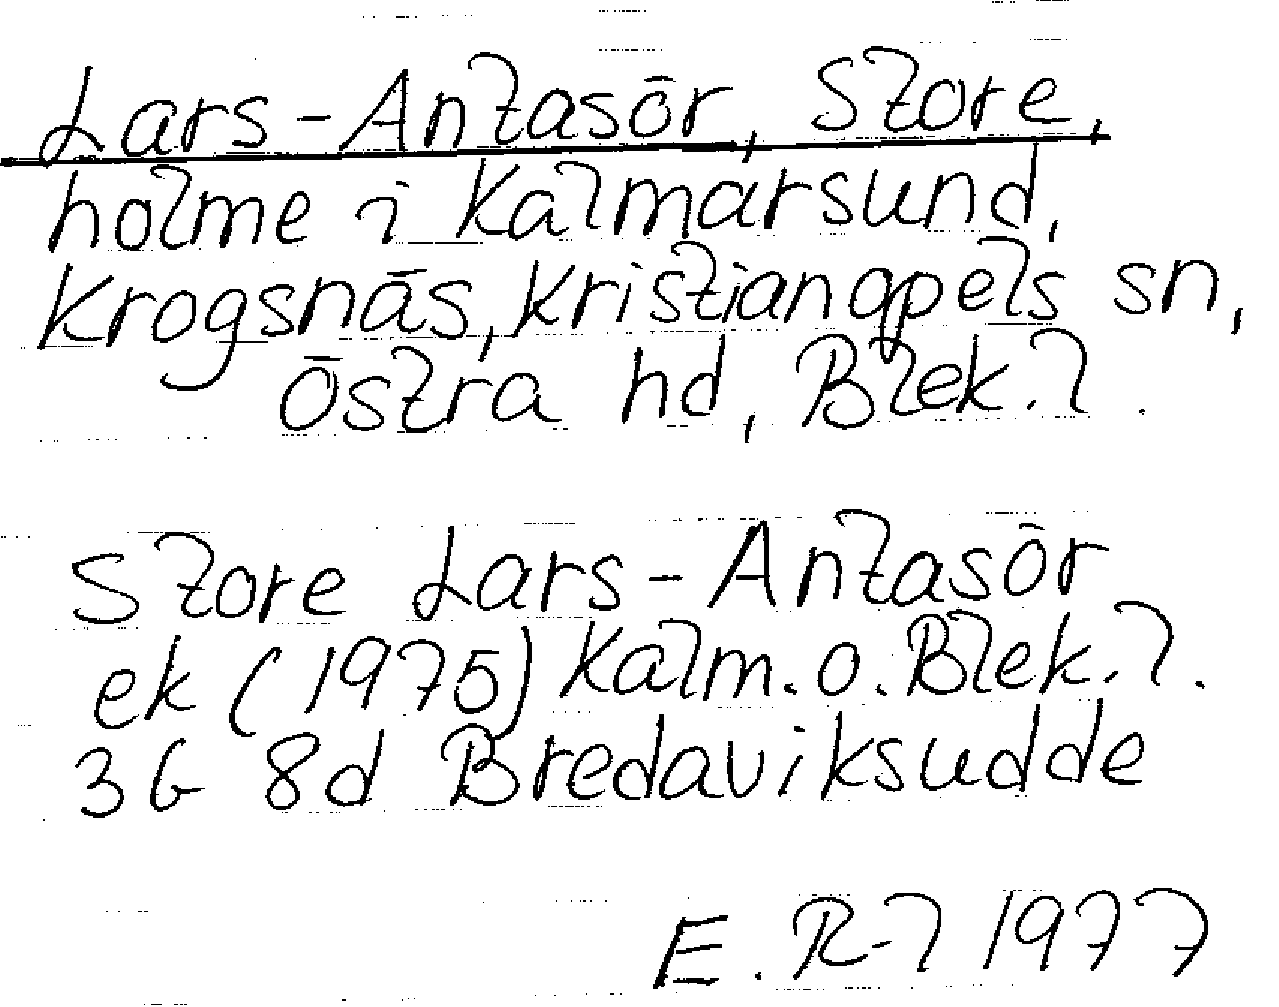 Lars-Antasör, Store,
holme i Kalmarsund,
Krogsnäs, Kristianopels sn,
Östra hd, Blek.l.
Store Lars-Antasör
ek (1975) Kalm.o.Blek.l.
3G 8d Bredaviksudde
E. R-l 1977